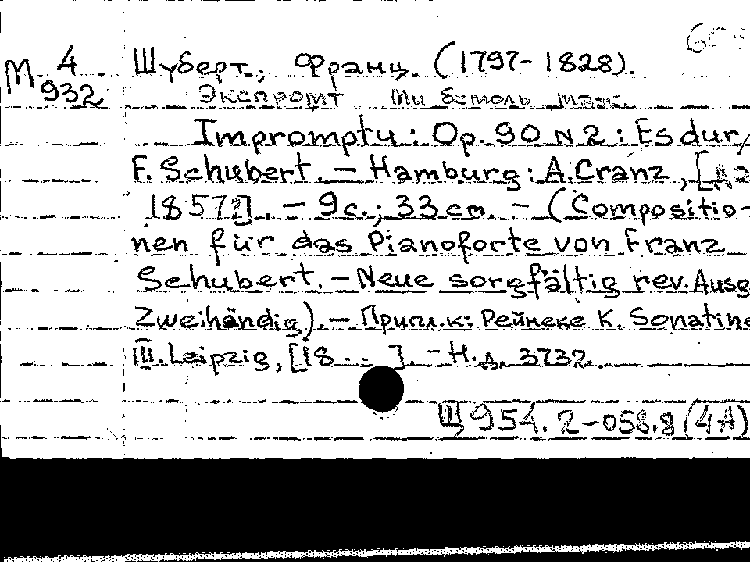 М 4
932
Шуберт, Франц. (1797-1828).
Экспромт ми бемоль маж.
Impromptu: Op. 90 N 2: Es dur/
F. Schubert. – Hamburg: A. Cranz, [до
1857?]. – 9 с.; 33 см. – (Compositio-
nen für das Pianoforte von Franz
Schubert. – Neue sorgfältig rev. Ausg
Zweihändig). – Припл. к: Рейнеке К. Sonatine
III. Leipzig, [18 . . ]. – Н.д. 3732.
Щ 954.2-058.8 (4А)